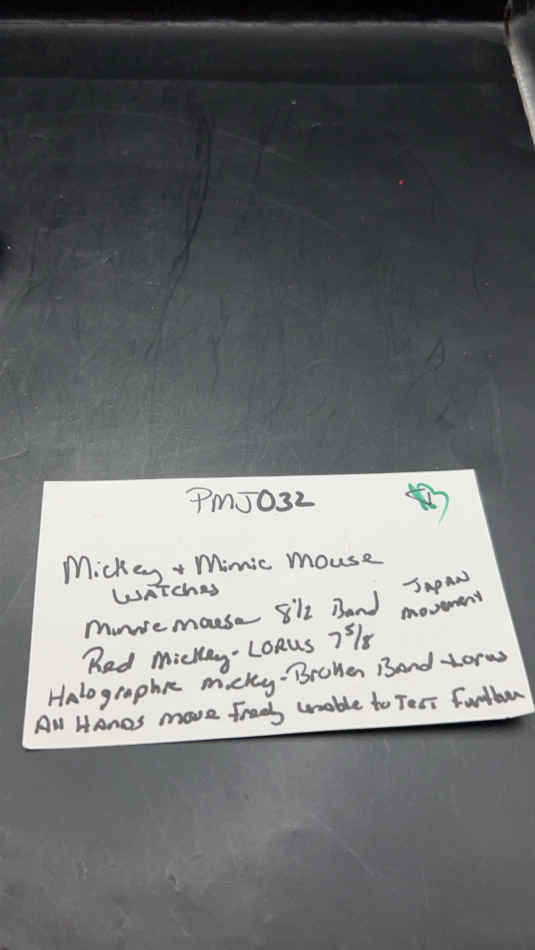 PMJ032
Mickey + Mimic Mouse
WATCHes
Minnie mouse 8 1/2 Band JAPAN movement
Red Mickey - LORUS 7 5/8
Halographic micky - Broken Band - Lorus
All HANDS move Freely unable to Test Further